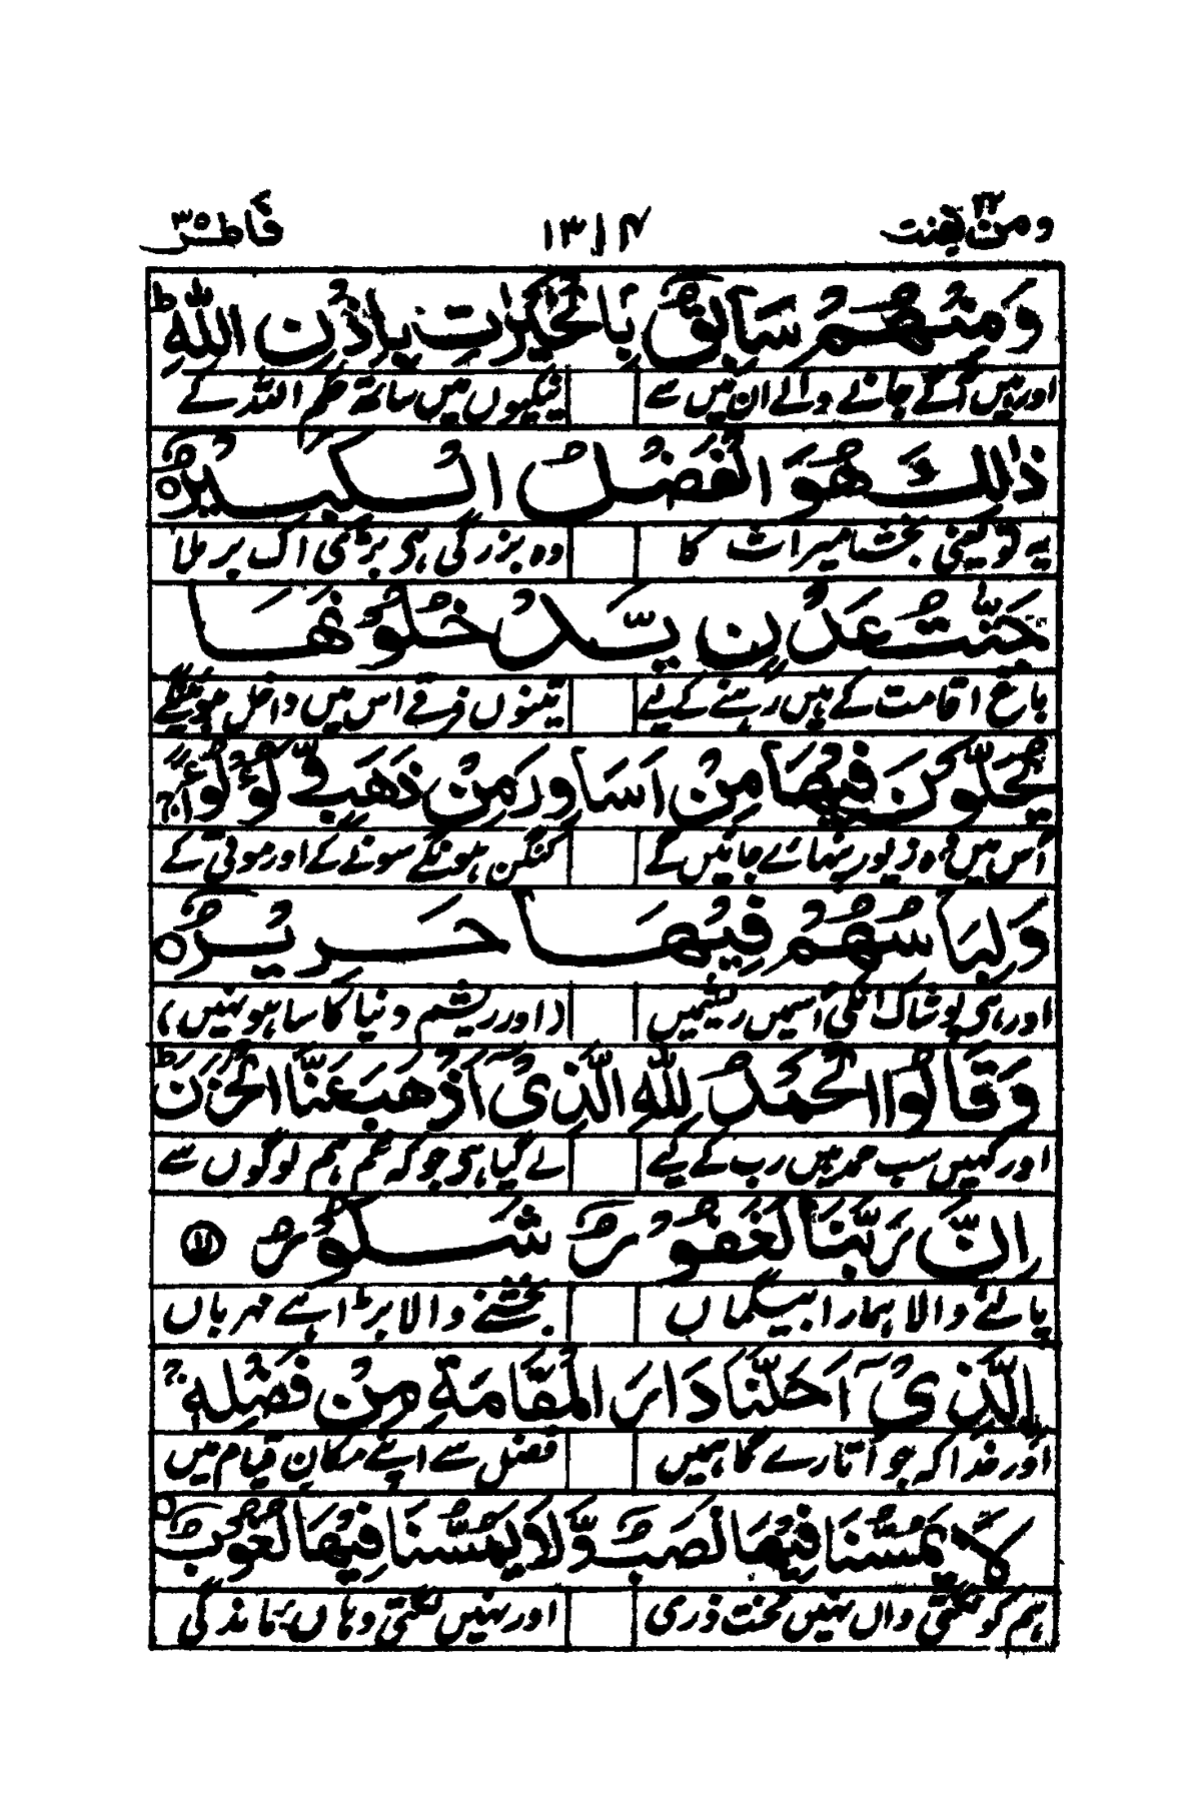 ومن یقنت ۲۲ ۱۳۱۴ فاطر ۳۵
وَمِنْهُمْ سَابِقٌۢ بِالْخَيْرٰتِ بِاِذْنِ اللّٰهِ ؕ
اور ہیں آگے جانے والے ان میں سے نیکیوں میں ساتھ حکم اللہ کے
ذٰلِكَ هُوَ الْفَضْلُ الْكَبِيْرُ ○
یہ تو یعنی بخشا میراث کا وہ بزرگی ہی بڑی اک بر ملا
جَنّٰتُ عَدْنٍ يَّدْخُلُوْنَهَا
باغ اقامت کے ہیں رہنے کے لیے تینوں فرقے اس میں داخل ہوئیں گے
يُحَلَّوْنَ فِيْهَا مِنْ اَسَاوِرَ مِنْ ذَهَبٍ وَّلُؤْلُؤًا ۚ
اُس میں وہ زیور پنہائے جائیں گے کنگن ہونگے سونے کے اور موتی کے
وَلِبَاسُهُمْ فِيْهَا حَرِيْرٌ ○
اور ہی پوشاک انکی اُسمیں ریشمیں (اور ریشم دنیا کا سا ہو نہیں)
وَقَالُوا الْحَمْدُ لِلّٰهِ الَّذِيْٓ اَذْهَبَ عَنَّا الْحَزَنَ ؕ
اور کہیں سب حمد ہیں رب کے لیے لے گیا ہی جو کہ غم ہم لوگوں سے
اِنَّ رَبَّنَا لَغَفُوْرٌ شَكُوْرُ
پالنے والا ہمارا بیگماں بخشنے والا بڑا ہے مہرباں
الَّذِيْٓ اَحَلَّنَا دَارَ الْمُقَامَةِ مِنْ فَضْلِهٖ ۚ
اور خدا کہ جو اُتارے گا ہمیں فضل سے اپنے مکانِ قیام میں
لَا يَمَسُّنَا فِيْهَا نَصَبٌ وَّلَا يَمَسُّنَا فِيْهَا لُغُوْبٌ ○
ہم کو لگتی واں نہیں محنت ذری اور نہیں لگتی وہاں ہے ماندگی